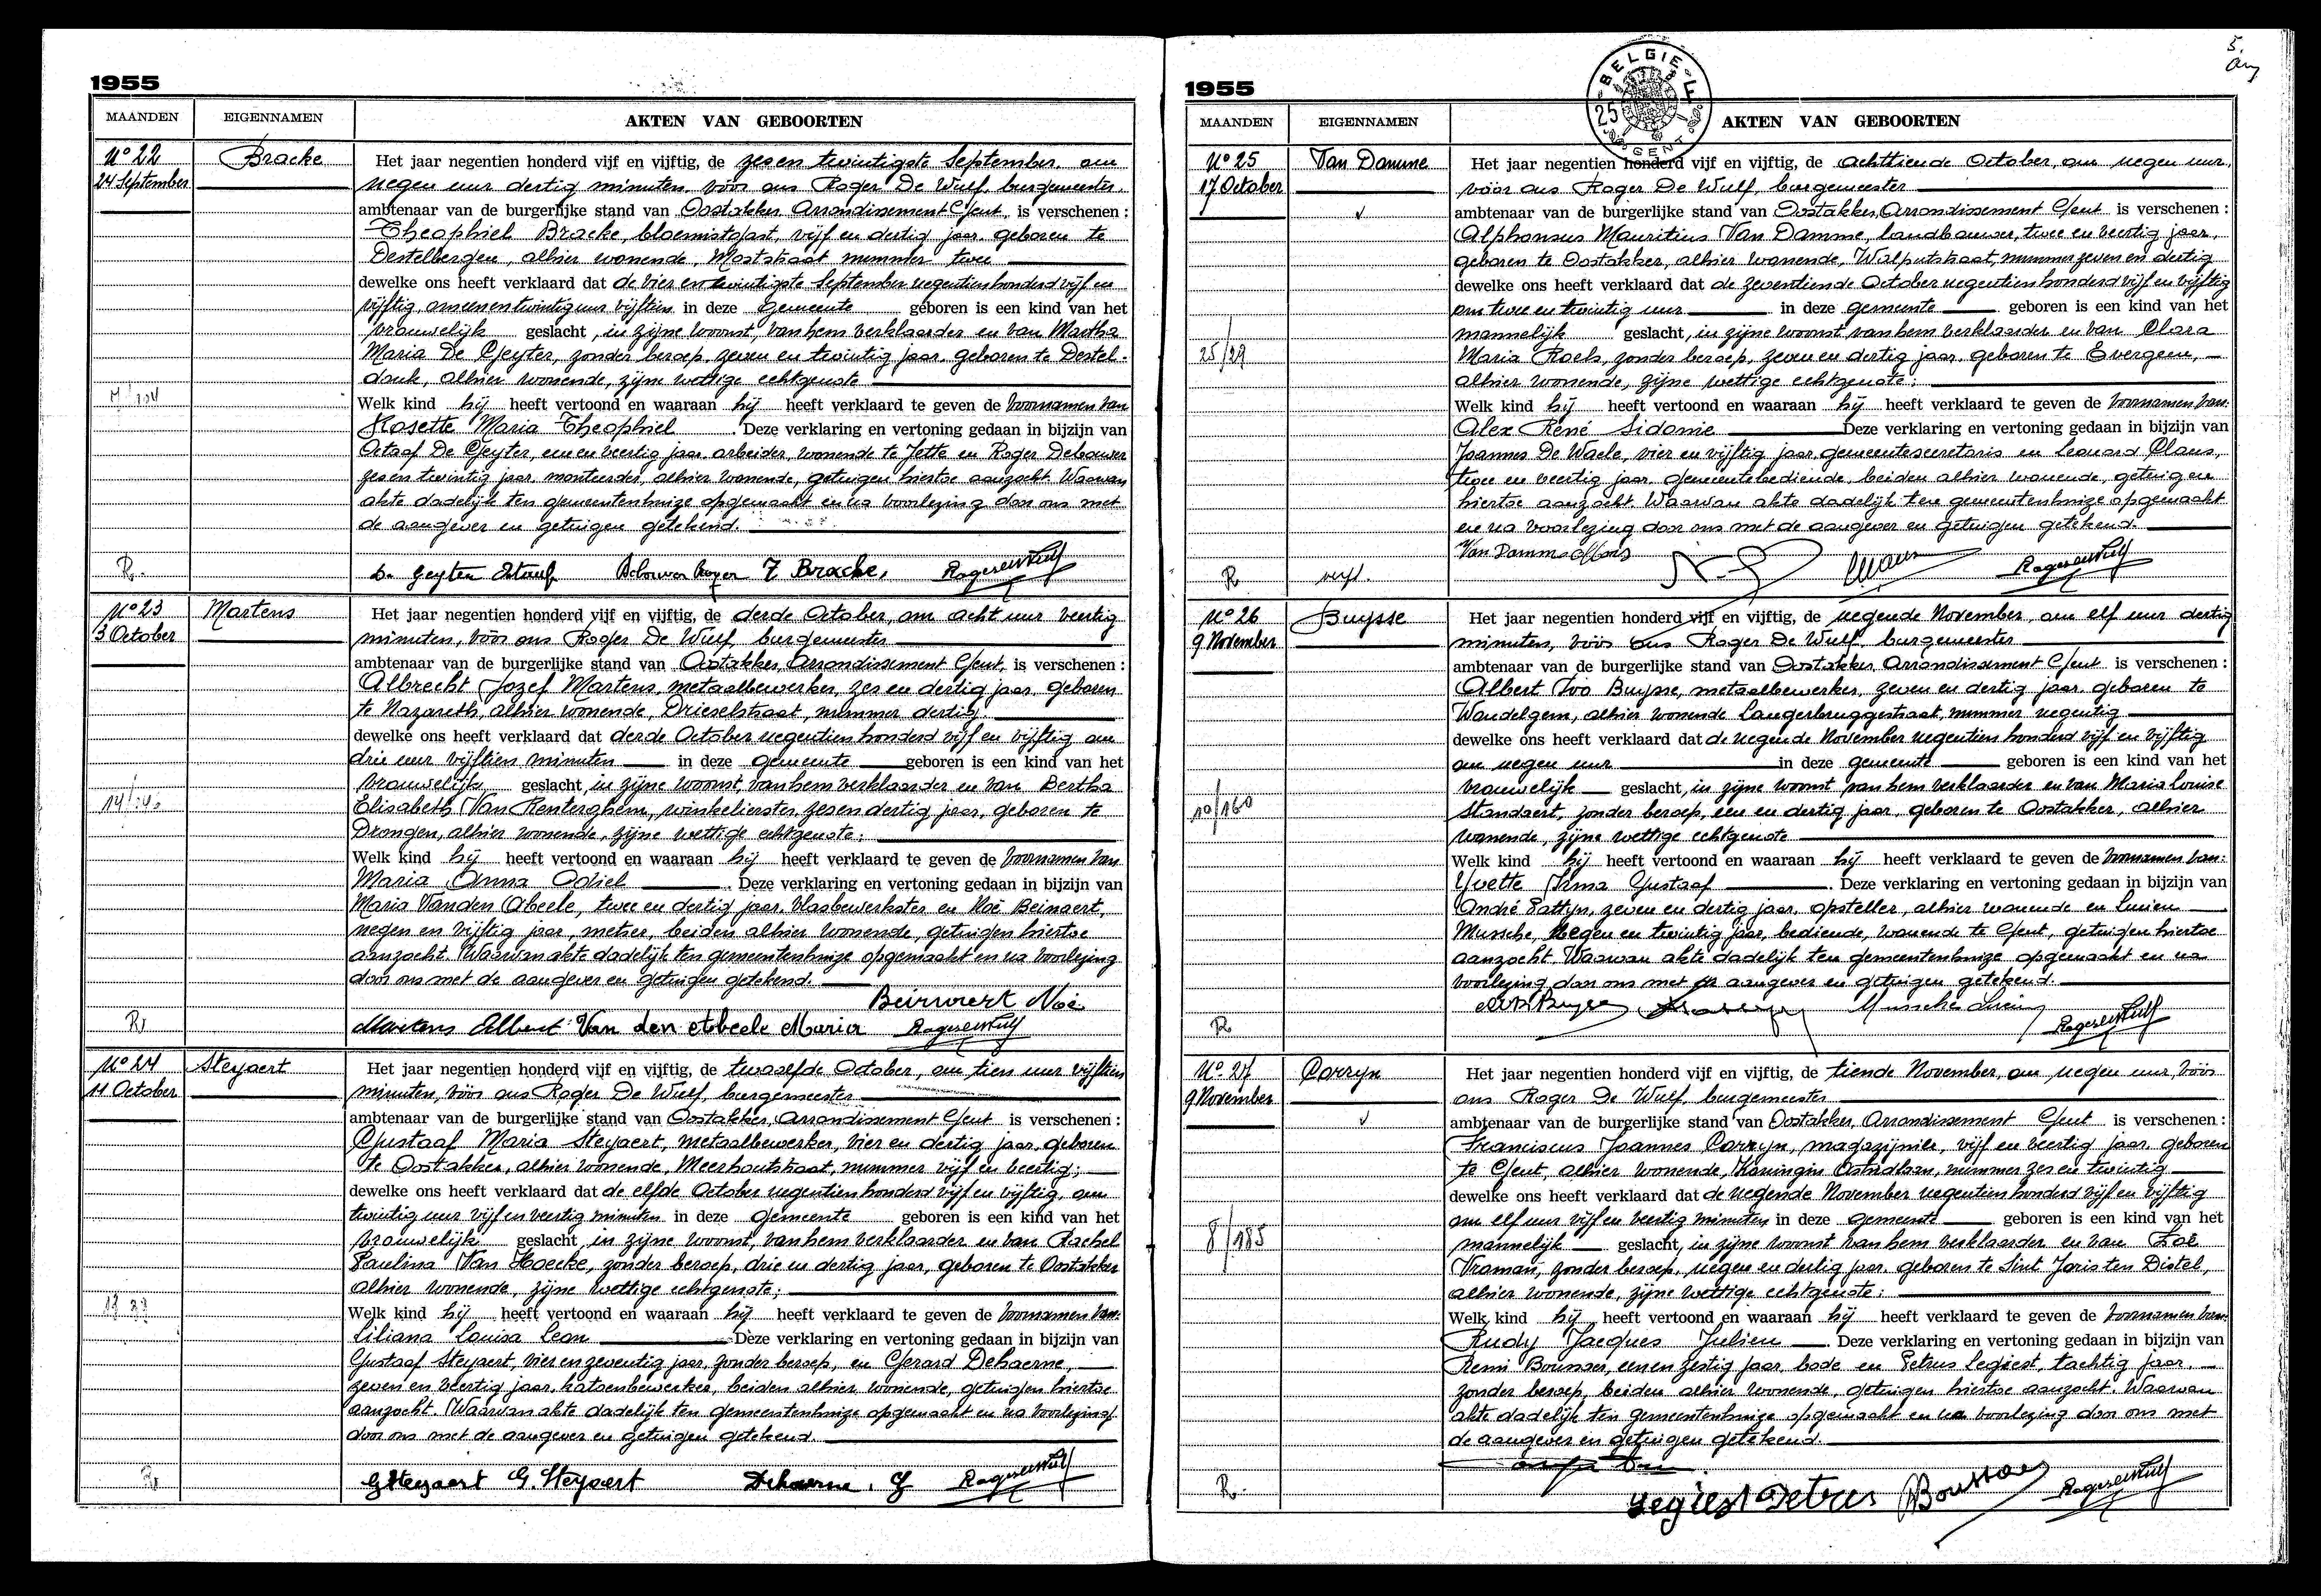 1955
MAANDEN EIGENNAMEN AKTEN VAN GEBOORTEN
N° 22 Bracke Het jaar negentien honderd vijf en vijftig, de zes en twintigste September, om
24 September negen uur dertig minuten, vóór ons Roger De Wulf, burgemeester
ambtenaar van de burgerlijke stand van Oostakker, Arrondissement Gent, is verschenen :
Theophiel Bracke, bloemist, vijf en dertig jaar, geboren te
Destelbergen, alhier wonende, nummer twee
dewelke ons heeft verklaard dat de vier en twintigste September negentienhonderd vijf en
vijftig, om een en twintig uur vijftien in deze gemeente geboren is een kind van het
vrouwelijk geslacht, in zijne woonst, van hem verklaarder en van Martha
Maria De Geyter, zonder beroep, zeven en twintig jaar, geboren te Destel-
donk, alhier wonende, zijne wettige echtgenote
Welk kind hij heeft vertoond en waaraan hij heeft verklaard te geven de voornamen van
Rosette Maria Theophiel . Deze verklaring en vertoning gedaan in bijzijn van
De Geyter, een en veertig jaar, arbeider, wonende te Jette en Roger Debouver
zes en twintig jaar, monteerder, alhier wonende, getuigen hiertoe aanzocht. Waarvan
akte dadelijk ten gemeentenhuize opgemaakt en na voorlezing door ons met
de aangever en getuigen getekend.
R. De Geyter Debouver Roger T. Bracke, Roger De Wulf
N° 23 Martens Het jaar negentien honderd vijf en vijftig, de derde October, om acht uur veertig
3 October minuten, vóór ons Roger De Wulf, burgemeester
ambtenaar van de burgerlijke stand van Oostakker, Arrondissement Gent, is verschenen :
Albrecht Jozef Martens, metaalbewerker, zes en dertig jaar, geboren
te Nazareth, alhier wonende, Drieselstraat, nummer dertig
dewelke ons heeft verklaard dat derde October negentien honderd vijf en vijftig om
drie uur vijftien minuten in deze gemeente geboren is een kind van het
vrouwelijk geslacht, in zijne woonst, van hem verklaarder en van Bertha
Elisabeth Van Renterghem, winkelierster, zes en dertig jaar, geboren te
Drongen, alhier wonende, zijne wettige echtgenote :
Welk kind hij heeft vertoond en waaraan hij heeft verklaard te geven de voornamen van
Maria Anna Odiel . Deze verklaring en vertoning gedaan in bijzijn van
Maria Vanden Abeele, twee en dertig jaar, vlasbewerkster en Noë Beirnaert,
negen en vijftig jaar, metser, beiden alhier wonende, getuigen hiertoe
aanzocht. Waarvan akte dadelijk ten gemeentenhuize opgemaakt en na voorlezing
door ons met de aangever en getuigen getekend.
Beirnaert Noë
R. Martens Albert Van den Abeele Maria Roger De Wulf
N° 24 Steyaert Het jaar negentien honderd vijf en vijftig, de twaalfde October, om tien uur vijftien
11 October minuten, vóór ons Roger De Wulf, burgemeester
ambtenaar van de burgerlijke stand van Oostakker, Arrondissement Gent is verschenen :
Gustaaf Maria Steyaert, metaalbewerker, vier en dertig jaar, geboren
te Oostakker, alhier wonende, Meerhoutstraat, nummer vijf en veertig ;
dewelke ons heeft verklaard dat de elfde October negentien honderd vijf en vijftig, om
twintig uur vijf en veertig minuten in deze gemeente geboren is een kind van het
vrouwelijk geslacht, in zijne woonst, van hem verklaarder en van Rachel
Paulina Van Hoecke, zonder beroep, drie en dertig jaar, geboren te Oostakker
alhier wonende, zijne wettige echtgenote ;
Welk kind hij heeft vertoond en waaraan hij heeft verklaard te geven de voornamen van:
Liliana Louisa Leon . Deze verklaring en vertoning gedaan in bijzijn van
Gustaaf Steyaert, vier en zeventig jaar, zonder beroep, en Gerard Dehaerne,
zeven en veertig jaar, katoenbewerker, beiden alhier wonende, getuigen hiertoe
aanzocht. Waarvan akte dadelijk ten gemeentenhuize opgemaakt en na voorlezing
door ons met de aangever en getuigen getekend.
G Steyaert G. Steyaert Dehaerne. G Roger De Wulf
5.
1955
BELGIE - F
25
GENT
MAANDEN EIGENNAMEN AKTEN VAN GEBOORTEN
N° 25 Van Damme Het jaar negentien honderd vijf en vijftig, de achttiende October, om negen uur,
17 October vóór ons Roger De Wulf, burgemeester
ambtenaar van de burgerlijke stand van Oostakker, Arrondissement Gent is verschenen :
Alphonsus Mauritius Van Damme, landbouwer, twee en veertig jaar,
geboren te Oostakker, alhier wonende, Walputstraat, nummer zeven en dertig
dewelke ons heeft verklaard dat de zeventiende October negentien honderd vijf en vijftig
om twee en twintig uur in deze gemeente geboren is een kind van het
mannelijk geslacht, in zijne woonst van hem verklaarder en van Clara
25/29 Maria Roels, zonder beroep, zeven en dertig jaar, geboren te Evergem,
alhier wonende, zijne wettige echtgenote :
Welk kind hij heeft vertoond en waaraan hij heeft verklaard te geven de voornamen van:
Alex René Sidonie Deze verklaring en vertoning gedaan in bijzijn van
Joannes De Waele, vier en vijftig jaar, gemeentesecretaris en Leonard Claus,
twee en veertig jaar, gemeentebediende, beiden alhier wonende, getuigen
hiertoe aanzocht. Waarvan akte dadelijk ten gemeentenhuize opgemaakt
en na voorlezing door ons met de aangever en getuigen getekend.
Van Damme Alfons
R Claus Roger De Wulf
N° 26 Buysse Het jaar negentien honderd vijf en vijftig, de negende November, om elf uur dertig
9 November minuten, vóór ons Roger De Wulf, burgemeester
ambtenaar van de burgerlijke stand van Oostakker, Arrondissement Gent is verschenen :
Albert Ivo Buysse, metaalbewerker, zeven en dertig jaar, geboren te
Wondelgem, alhier wonende Langerbruggestraat, nummer negentig
dewelke ons heeft verklaard dat de negende November negentien honderd vijf en vijftig
om negen uur in deze gemeente geboren is een kind van het
vrouwelijk geslacht, in zijne woonst van hem verklaarder en van Maria Louise
10/160 Standaert, zonder beroep, een en dertig jaar, geboren te Oostakker, alhier
wonende, zijne wettige echtgenote
Welk kind hij heeft vertoond en waaraan hij heeft verklaard te geven de voornamen van:
Yvette Irma Gustaaf . Deze verklaring en vertoning gedaan in bijzijn van
André Pattyn, zeven en dertig jaar, opsteller, alhier wonende en Lucien
Mussche, negen en twintig jaar, bediende, wonende te Gent, getuigen hiertoe
aanzocht. Waarvan akte dadelijk ten gemeentenhuize opgemaakt en na
voorlezing door ons met de aangever en getuigen getekend.
Alb Buysse Mussche Lucien
R Roger De Wulf
N° 27 Corryn Het jaar negentien honderd vijf en vijftig, de tiende November, om negen uur, vóór
9 November ons Roger De Wulf, burgemeester
ambtenaar van de burgerlijke stand van Oostakker, Arrondissement Gent is verschenen :
Franciscus Joannes Corryn, magazijnier, vijf en veertig jaar, geboren
te Gent, alhier wonende, Koningin Astridlaan, nummer zes en twintig
dewelke ons heeft verklaard dat de negende November negentien honderd vijf en vijftig
om elf uur vijf en veertig minuten in deze gemeente geboren is een kind van het
8/185 mannelijk geslacht, in zijne woonst van hem verklaarder en van Zoë
Vroman, zonder beroep, negen en dertig jaar, geboren te Sint Joris ten Distel,
alhier wonende, zijne wettige echtgenote :
Welk kind hij heeft vertoond en waaraan hij heeft verklaard te geven de voornamen van:
Rudy Jacques Julien . Deze verklaring en vertoning gedaan in bijzijn van
Remi Boussaer, een en zestig jaar, bode en Petrus Legiest, tachtig jaar,
zonder beroep, beiden alhier wonende, getuigen hiertoe aanzocht. Waarvan
akte dadelijk ten gemeentenhuize opgemaakt en na voorlezing door ons met
de aangever en getuigen getekend.
R. Legiest Petrus Roger De Wulf